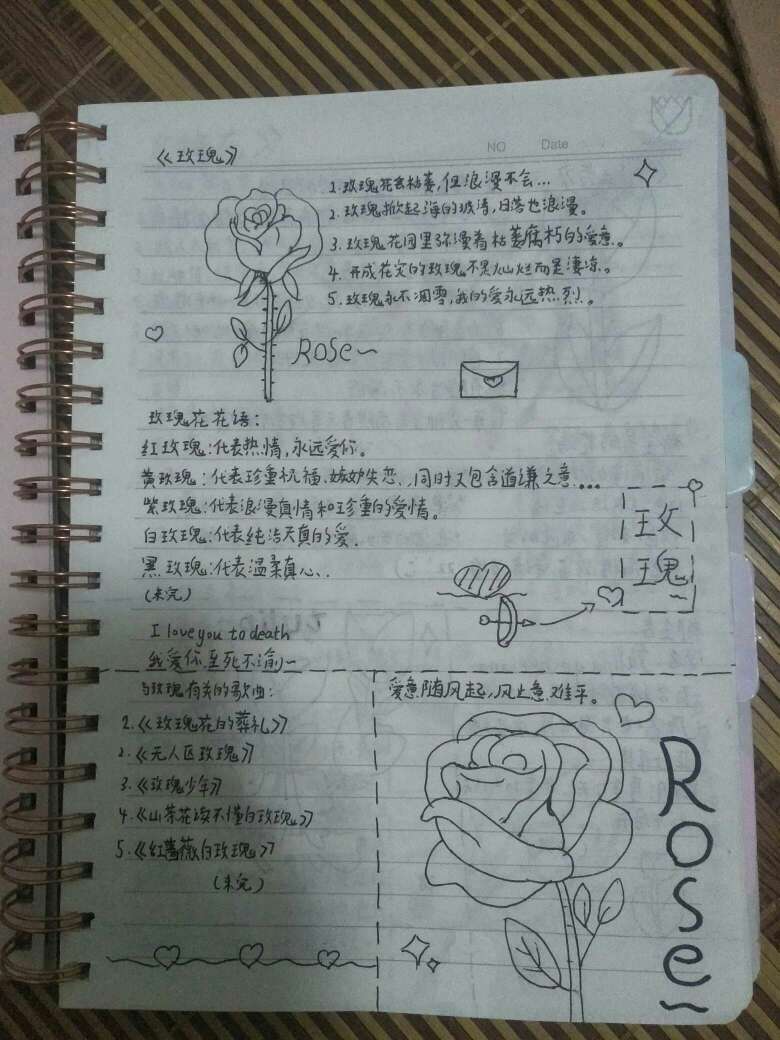 NO Date
《玫瑰》
1.玫瑰花会枯萎,但浪漫不会...
2.玫瑰掀起海的波涛,日落也浪漫。
3.玫瑰花园里弥漫着枯萎腐朽的爱意。
4.开成花灾的玫瑰不是灿烂而是凄凉。
5.玫瑰永不凋零,我的爱永远热烈。
ROSe~
玫瑰花花语:
红玫瑰:代表热情,永远爱你。
黄玫瑰:代表珍重祝福、嫉妒失恋、同时又包含道谦之意...
紫玫瑰:代表浪漫真情和珍重的爱情。
白玫瑰:代表纯洁天真的爱.
黑玫瑰:代表温柔真心..
(未完)
玫
瑰~
I love you to death
我爱你至死不渝~
与玫瑰有关的歌曲:
1.《玫瑰花的葬礼》
2.《无人区玫瑰》
3.《玫瑰少年》
4.《山茶花读不懂白玫瑰》
5.《红蔷薇白玫瑰》
(未完)
爱意随风起,风止意难平。
Rose~